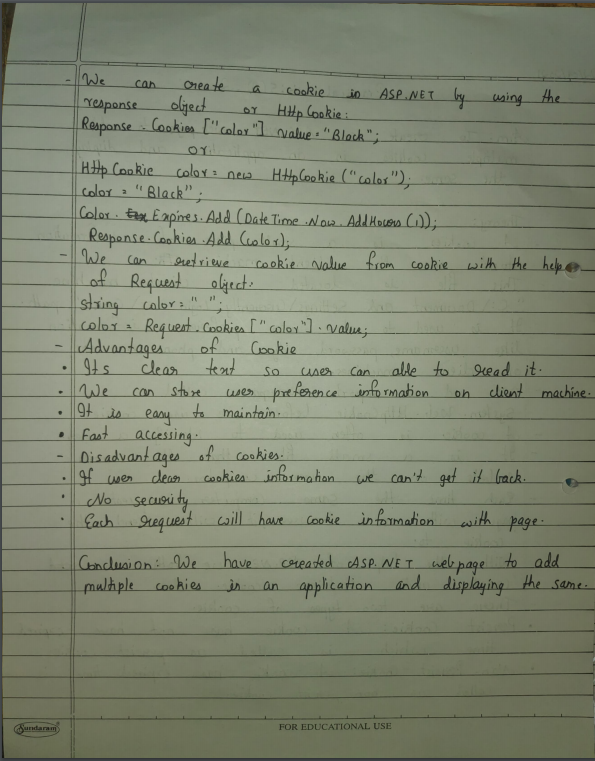 - We can create a cookie in ASP.NET by using the
response object or Http Cookie:
Response . Cookies ["color"] value = "Black";
or
Http Cookie color = new HttpCookie ("color");
color = "Black" ;
Color . Expires. Add (Date Time . Now . AddHours (1));
Response. Cookies . Add (color);
- We can retrieve cookie value from cookie with the help
of Request object.
string color = " ";
color = Request . Cookies ["color"] . value;
- Advantages of Cookie
• Its clear text so user can able to read it.
• We can store user preference information on client machine.
• It is easy to maintain.
• Fast accessing.
- Disadvantages of cookies.
• If user clear cookies information we can't get it back.
• No security
• Each request will have cookie information with page.
Conclusion: We have created ASP.NET web page to add
multiple cookies in an application and displaying the same.
Sundaram
FOR EDUCATIONAL USE